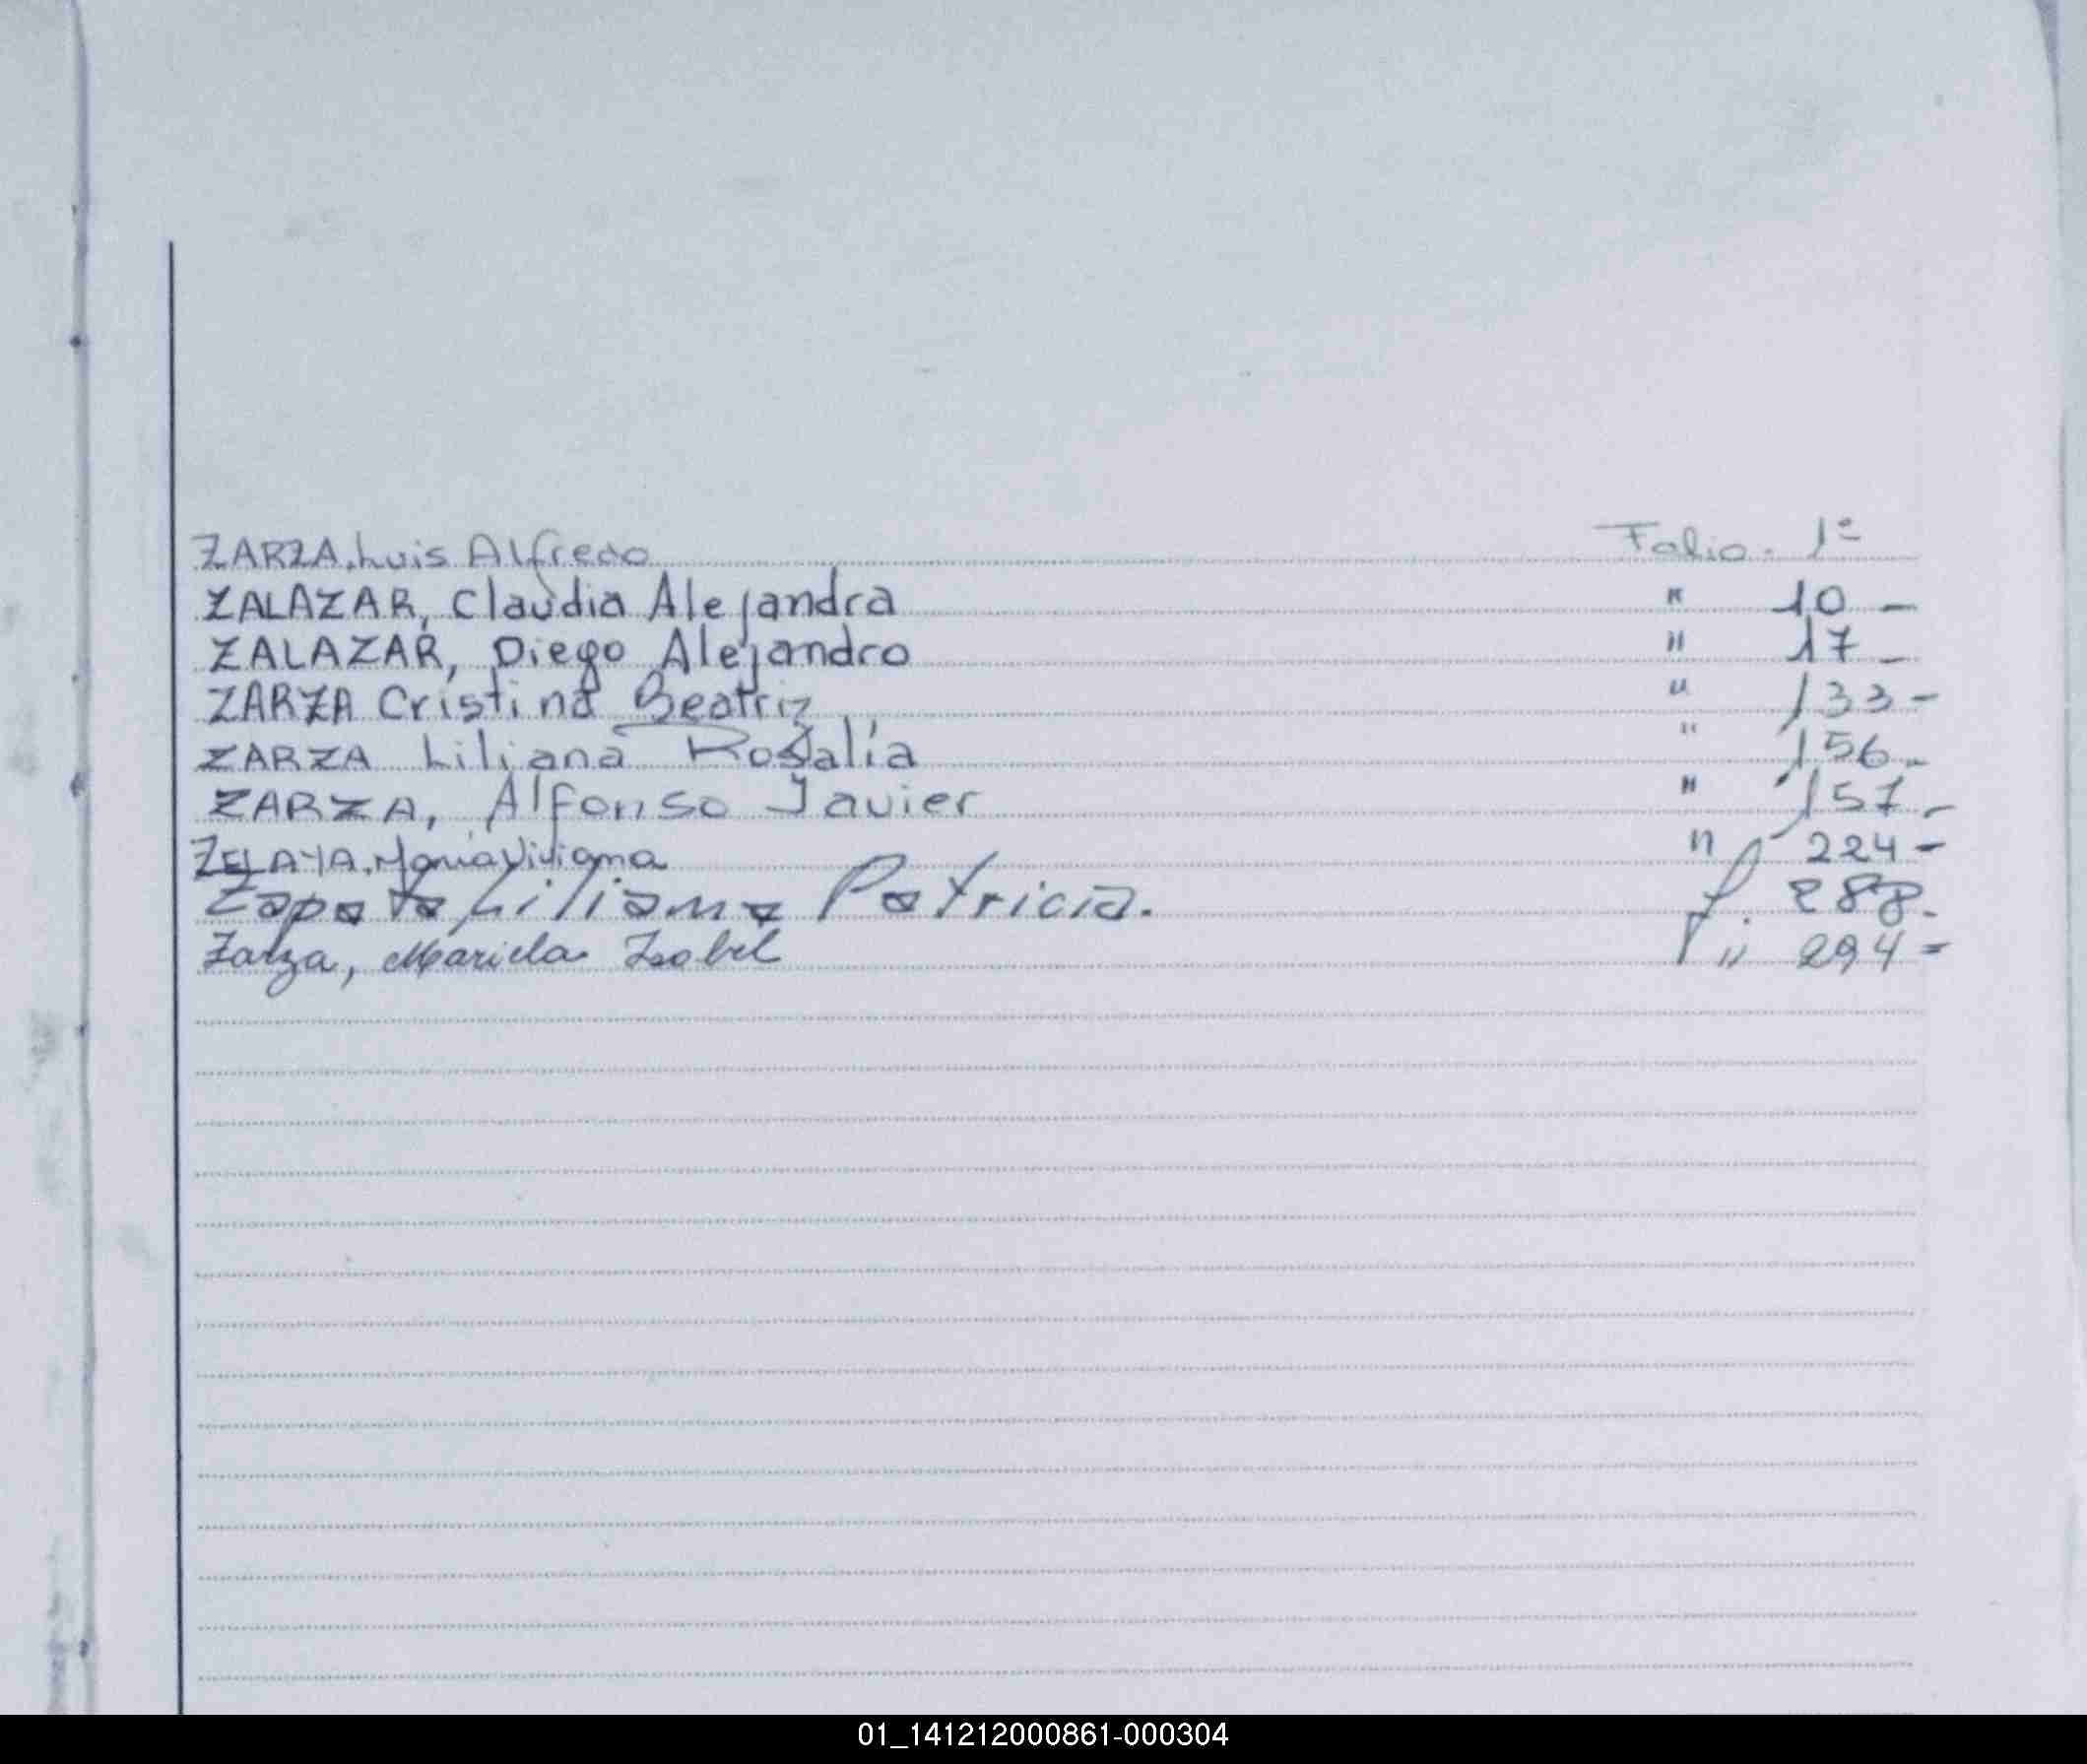 ZARZA, Luis Alfredo Folio - 1º
ZALAZAR, Claudia Alejandra " 10 -
ZALAZAR, Diego Alejandro " 17 -
ZARZA Cristina Beatriz " 133 -
ZARZA Liliana Rosalía " 156 -
ZARZA, Alfonso Javier " 157 -
ZELAYA, Maria Viviana " 224 -
Zapata, Liliana Patricia. f. 288.
Zarza, Mariela Isabel f " 294 =
01_141212000861-000304